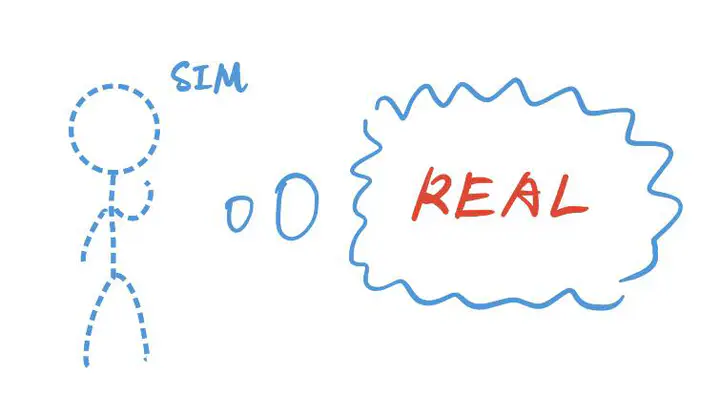 SIM
REAL